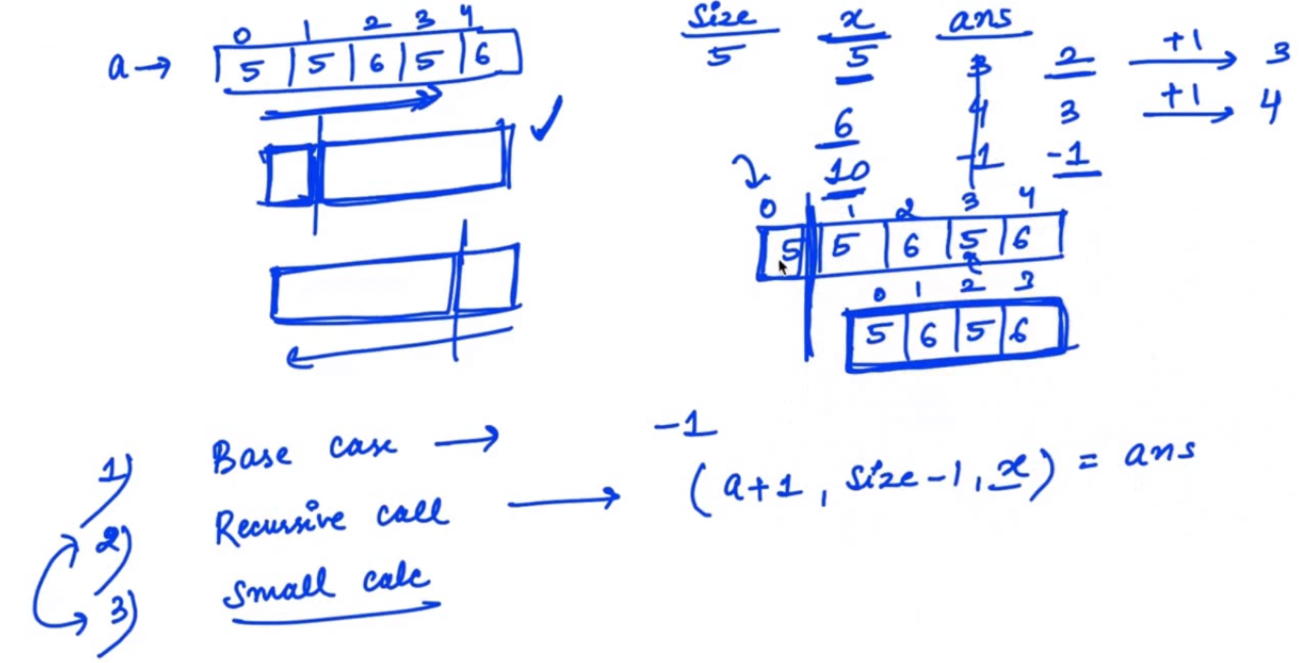 0 1 2 3 4
a → 5 5 6 5 6
size x ans
5 5 3 2 +1 3
6 4 3 +1 4
10 -1 -1
0 1 2 3 4
5 5 6 5 6
0 1 2 3
5 6 5 6
1) Base case → -1
2) Recursive call → (a+1, size-1, x) = ans
3) Small calc